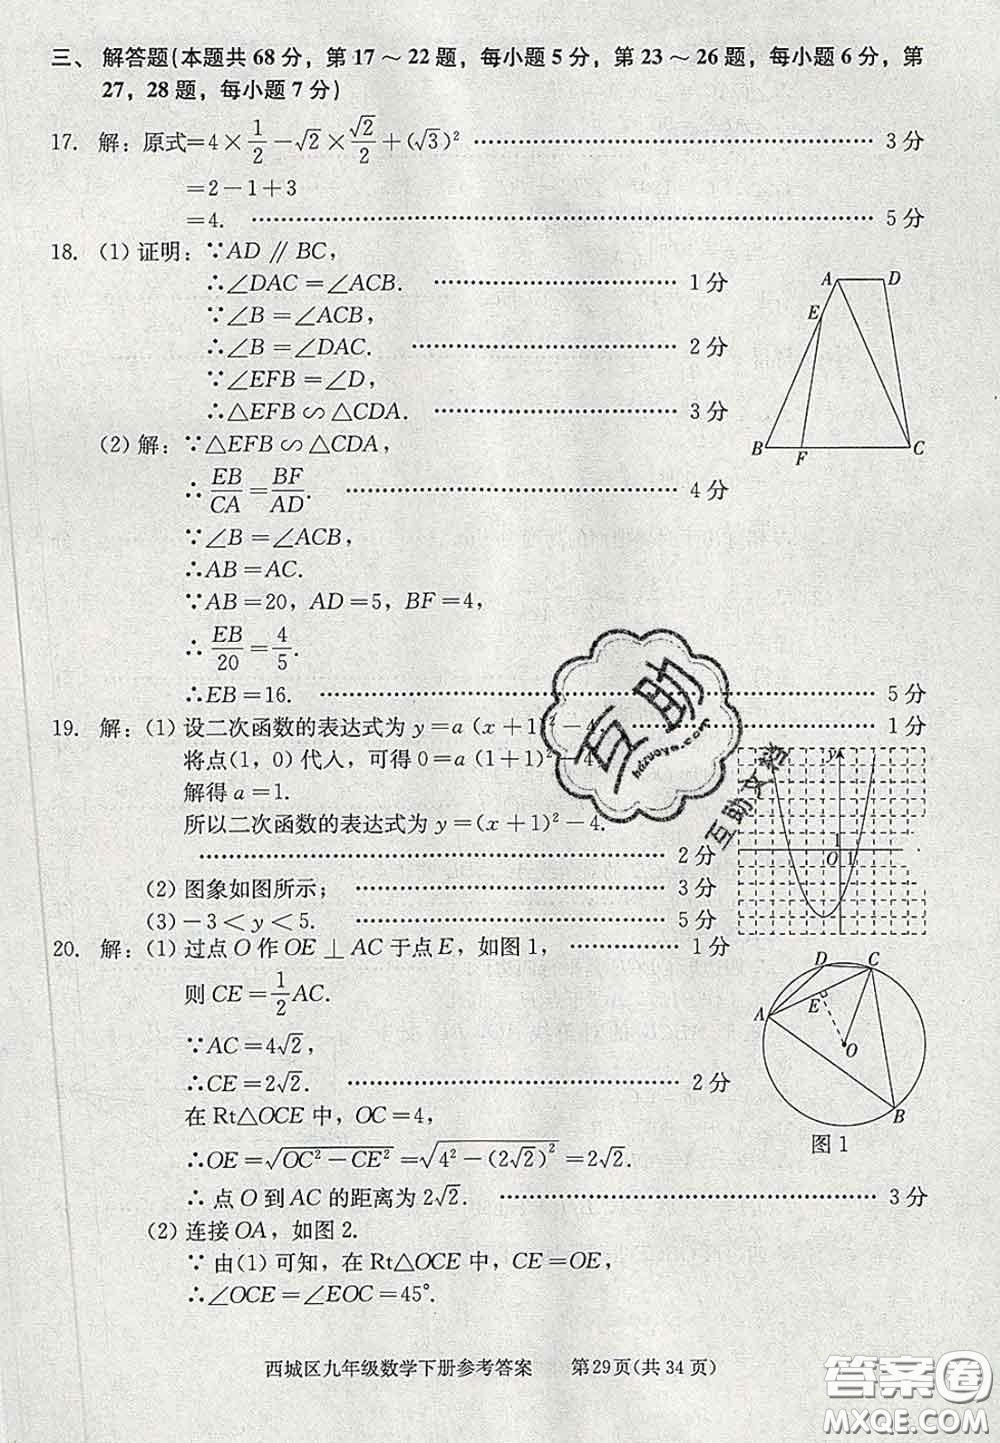 三、 解答题(本题共 68 分，第 17～22 题，每小题 5 分，第 23～26 题，每小题 6 分，第
27，28 题，每小题 7 分)
17. 解：原式＝4×1/2－√2×√2/2＋(√3)² …………………… 3 分
＝2－1＋3
＝4. …………………… 5 分
18. (1) 证明：∵AD∥BC，
∴∠DAC＝∠ACB. …………………… 1 分
∵∠B＝∠ACB，
∴∠B＝∠DAC. …………………… 2 分
∵∠EFB＝∠D，
∴△EFB∽△CDA. …………………… 3 分
(2) 解：∵△EFB∽△CDA，
∴EB/CA＝BF/AD. …………………… 4 分
∵∠B＝∠ACB，
∴AB＝AC.
∵AB＝20，AD＝5，BF＝4，
∴EB/20＝4/5.
∴EB＝16. …………………… 5 分
A D E B F C
19. 解：(1) 设二次函数的表达式为 y＝a (x＋1)²－4. …………………… 1 分
将点(1，0) 代人，可得 0＝a (1＋1)²－4
解得 a＝1.
所以二次函数的表达式为 y＝(x＋1)²－4.
…………………… 2 分
(2) 图象如图所示； …………………… 3 分
(3)－3＜y＜5. …………………… 5 分
y 1 O 1
20. 解：(1) 过点 O 作 OE⊥AC 于点 E，如图 1， …………………… 1 分
则 CE＝1/2AC.
∵AC＝4√2，
∴CE＝2√2. …………………… 2 分
在 Rt△OCE 中，OC＝4，
∴OE＝√(OC²－CE²)＝√(4²－(2√2)²)＝2√2.
∴ 点 O 到 AC 的距离为 2√2. …………………… 3 分
(2) 连接 OA，如图 2.
∵ 由(1) 可知，在 Rt△OCE 中，CE＝OE，
∴∠OCE＝∠EOC＝45°.
D C A E O B
图 1
互助
hdzuoye.com
互助文档
西城区九年级数学下册参考答案 第29页(共 34 页)
答案圈
MXQE.COM